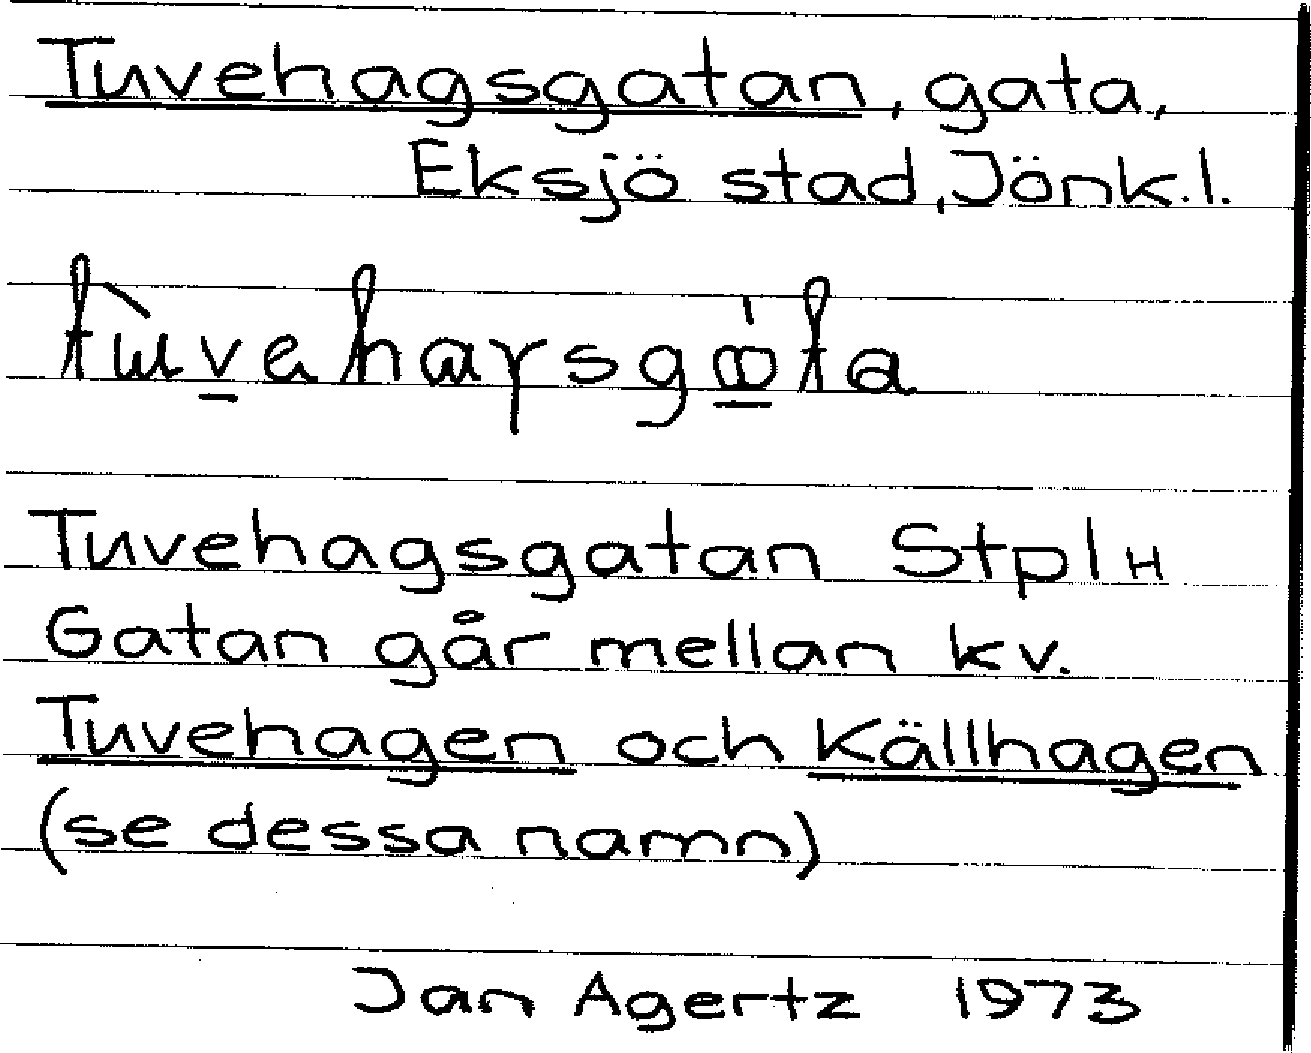 Tuvehagsgatan, gata,
Eksjö stad, Jönk.l.
Tuvehagsgatan Stpl H
Gatan går mellan kv.
Tuvehagen och Källhagen
(se dessa namn)
Jan Agertz 1973